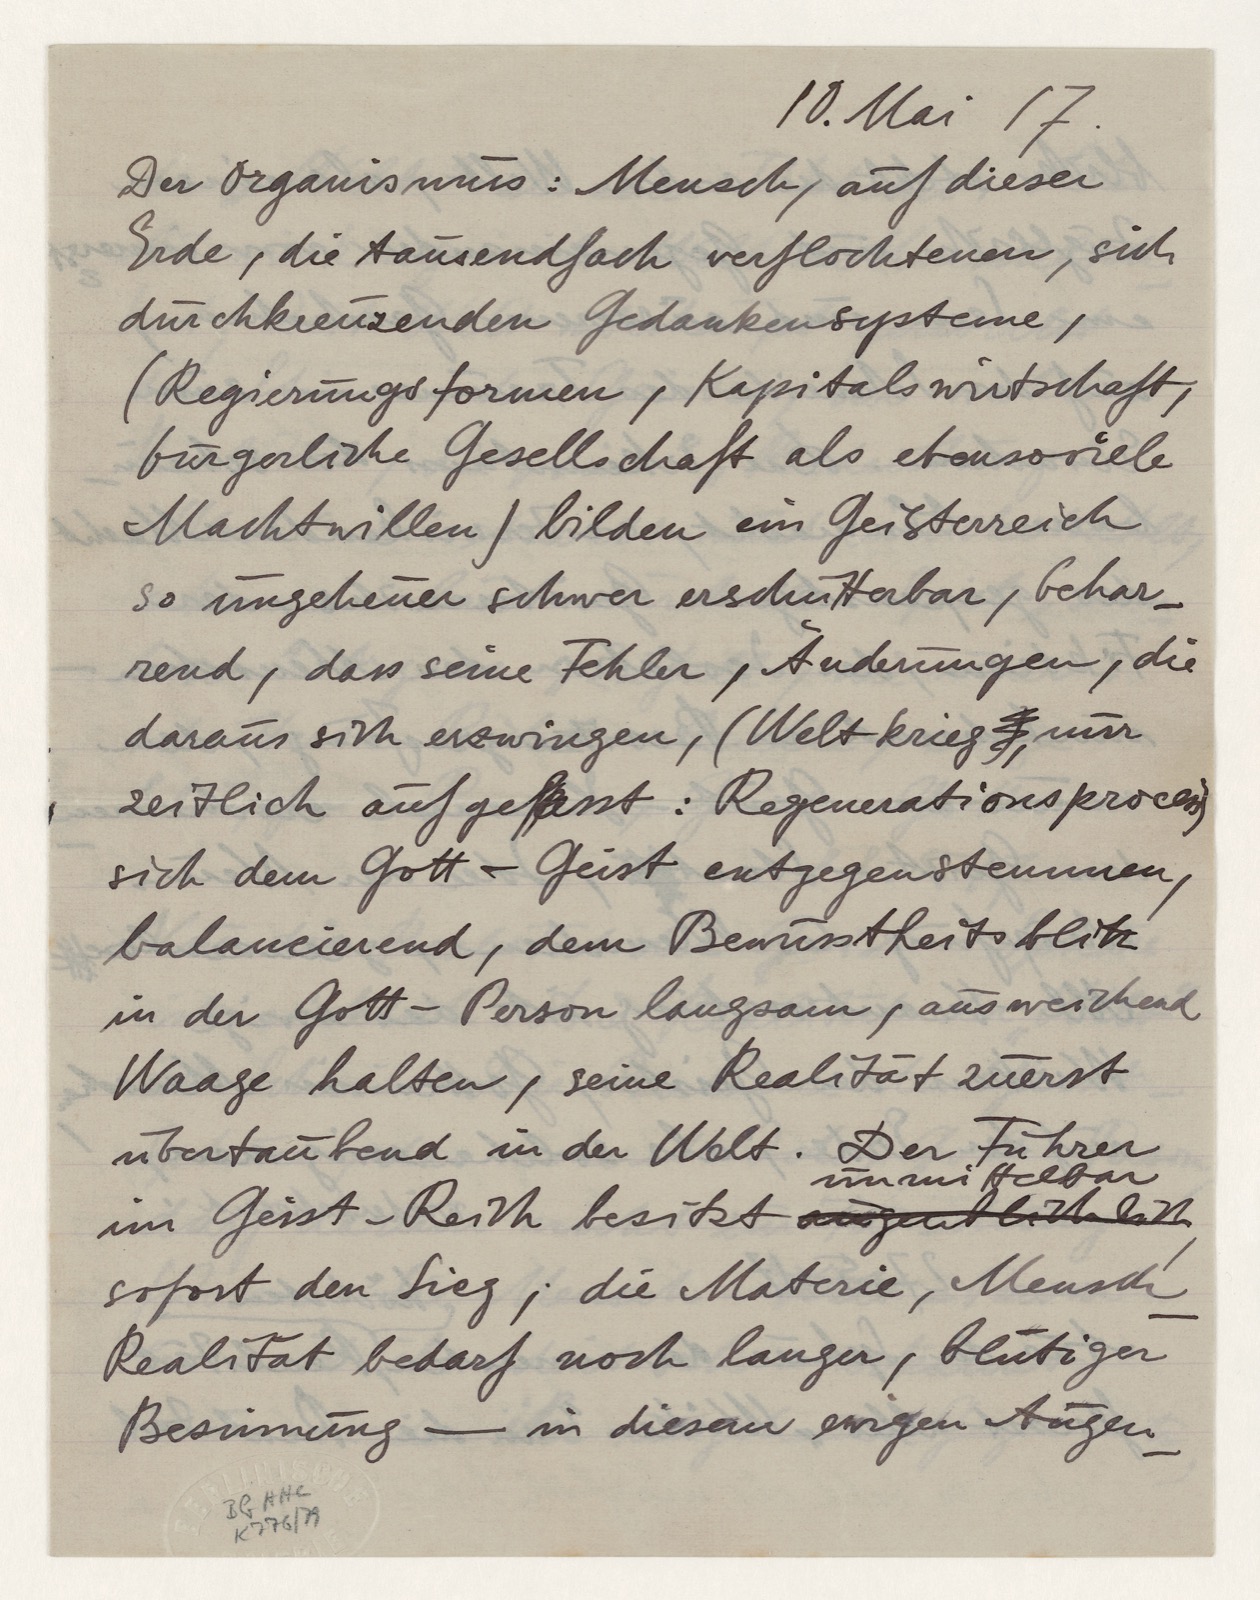 10. Mai 17.
Der Organismus: Mensch, auf dieser
Erde, die tausendfach verflochtenen, sich
durchkreuzenden Gedankensysteme,
(Regierungsformen, Kapitalswirtschaft,
bürgerliche Gesellschaft als ebensoviele
Machtwillen) bilden ein Geisterreich
so ungeheuer schwer erschütterbar, behar-
rend, dass seine Fehler, Änderungen, die
daraus sich erzwingen, (Weltkrieg, nur
zeitlich aufgefasst: Regenerationsprocess)
sich dem Gott-Geist entgegenstemmen,
balancierend, dem Bewusstheitsblitz
in der Gott-Person langsam, ausweichend
Waage halten, seine Realität zuerst
übertäubend in der Welt. Der Führer
unmittelbar
im Geist-Reich besitzt augenblicklich,
sofort den Sieg; die Materie, Mensch-
Realität bedarf noch langer, blutiger
Besinnung — in diesem ewigen Augen-
BG HHC
K776/79